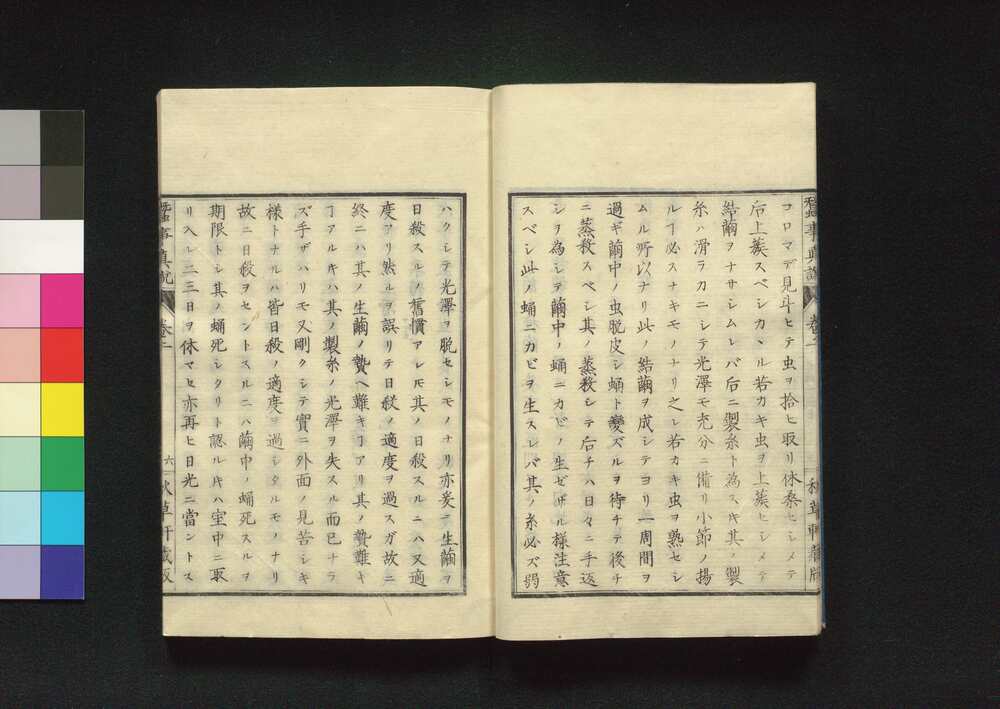 蚕事真説 卷二 秋草軒蔵版
コロマデ見斗ヒテ虫ヲ拾ヒ取リ休桑セシメテ
后上蔟スベシカヽル若カキ虫ヲ上蔟セシメテ
結繭ヲナサシムレバ后ニ製糸ト為スキ其ノ製
糸ハ滑ラカニシテ光澤モ充分ニ備リ小節ノ揚
ルヿ必スナキモノナリ之レ若カキ虫ヲ熟セシ
ムル所以ナリ此ノ結繭ヲ成シテヨリ一周間ヲ
過ギ繭中ノ虫脱皮シ蛹ト變ズルヲ待チテ後チ
ニ蒸殺スベシ其ノ蒸殺シテ后チハ日々ニ手返
シヲ為シテ繭中ノ蛹ニカビノ生ゼザル様注意
スベシ此ノ蛹ニカビヲ生スレバ其ノ糸必ズ弱
ハクシテ光澤ヲ脱セシモノナリ亦爰ニ生繭ヲ
日殺スルノ舊慣アレ𪜈其ノ日殺スルニハ又適
度アリ然ルヲ誤リテ日殺ノ適度ヲ過スガ故ニ
終ニハ其ノ生繭ノ贄ヘ難キヿアリ其ノ贄難キ
ヿアルキハ其ノ製糸ノ光澤ヲ失スル而已ナラ
ズ手ザハリモ又剛クシテ實ニ外面ノ見苦シキ
様トナルハ皆日殺ノ適度ヲ過シタルモノナリ
故ニ日殺ヲセントスルニハ繭中ノ蛹死スルヲ
期限トシ其ノ蛹死シタリト認ルキハ室中ニ取
リ入レ二三日ヲ休マセ亦再ヒ日光ニ當ントス
蚕事真説 卷二 六 秋草軒蔵版